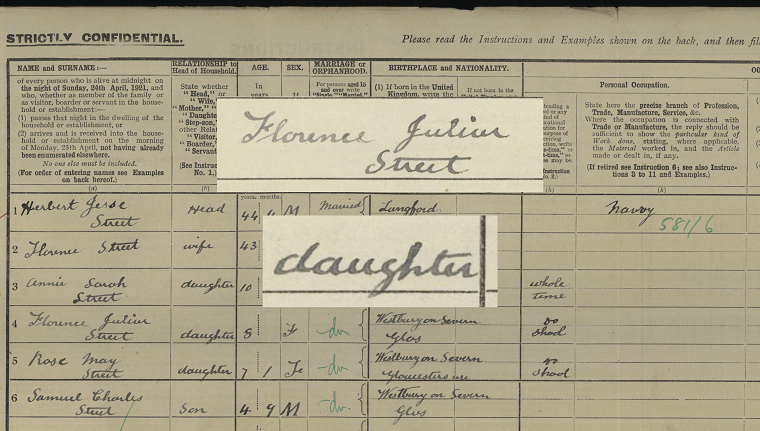 STRICTLY CONFIDENTIAL.
Please read the Instructions and Examples shown on the back, and then fil
NAME and SURNAME:—
of every person who is alive at midnight on
the night of Sunday, 24th April, 1921, and
who, whether as member of the family or
as visitor, boarder or servant in the house-
hold or establishment—
(1) passes that night in the dwelling of the
household or establishment, or
(2) arrives and is received into the house-
hold or establishment on the morning
of Monday, 25th April, not having already
been enumerated elsewhere.
No one else must be included.
(For order of entering names see Examples
on back hereof.)
(a)
RELATIONSHIP to
Head of Household.
State whether
"Head," or
"Wife,"
"Mother,"
"Daughter
"Step-son,"
other Relative
"Visitor,"
"Boarder,"
"Servant"
(See Instruc
No. 1.)
(b)
AGE.
In
years
SEX.
MARRIAGE or
ORPHANHOOD.
For persons aged 15
and over write
BIRTHPLACE and NATIONALITY.
(1) If born in the United
Kingdom, write the
If not born in the
Instruction
No. 2.)
OC
Personal Occupation.
State here the precise branch of Profession,
Trade, Manufacture, Service, &c.
Where the occupation is connected with
Trade or Manufacture, the reply should be
sufficient to show the particular kind of
Work done, stating, where applicable,
the Material worked in, and the Article
made or dealt in, if any.
(If retired see Instruction 6; see also Instruc-
tions 3 to 11 and Examples.)
(k)
Florence Julier
Street
years. months.
1 Herbert Jesse Street Head 44 M Married Langford Navvy
581/6
2 Florence Street wife 43
daughter
3 Annie Sarah Street daughter 10 whole time
4 Florence Julier Street daughter 8 F -do- Westbury on Severn Glos do
5 Rose May Street daughter 7 1 F -do- Westbury on Severn do
6 Samuel Charles Street Son 4 9 M -do- Westbury on Severn Glos